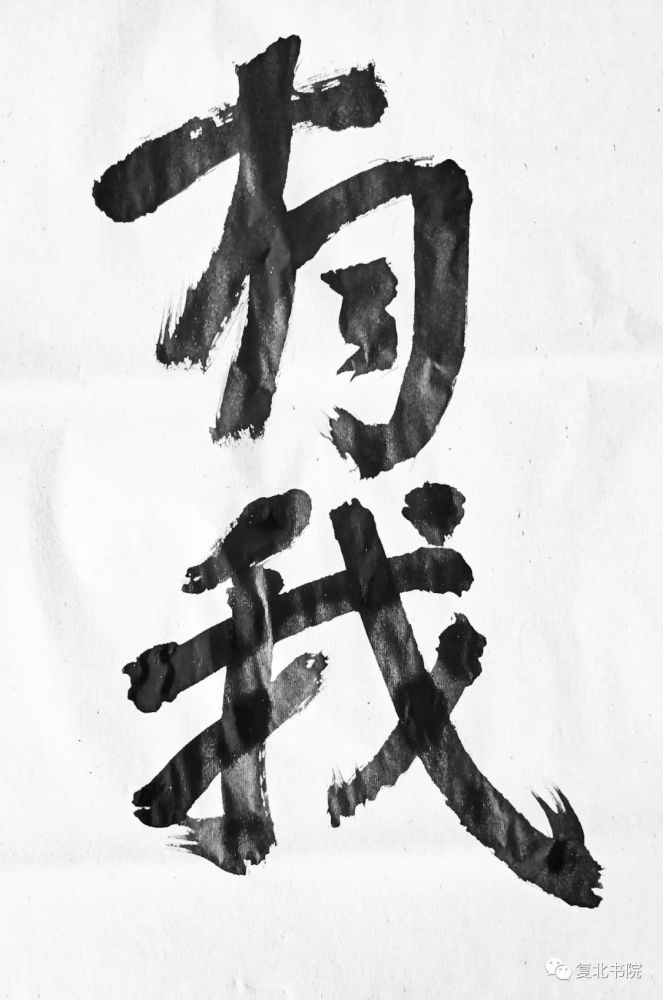 有我
复北书院